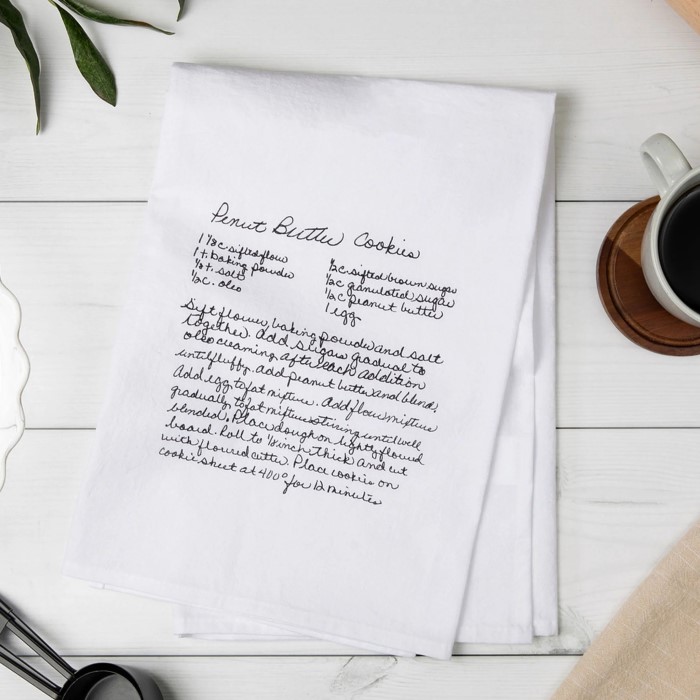 Penut Butter Cookies
1 1/2 c. sifted flow
1 t. baking powder
1/2 t. salt
1/2 c. oleo
1/2 c. sifted brown sugar
1/2 c granulated sugar
1/2 c peanut butter
1 egg
Sift flower, baking powder and salt
together. Add sugars gradual to
oleo creaming after each addition
until fluffy. Add peanut butter and blend.
Add egg to fat mixture. Add flow mixture
gradually to fat mixture stirring until well
blended. Place dough on lightly flowed
board. Roll to 1/8 inch thick and cut
with floured cutter. Place cookies on
cookie sheet at 400° for 12 minutes